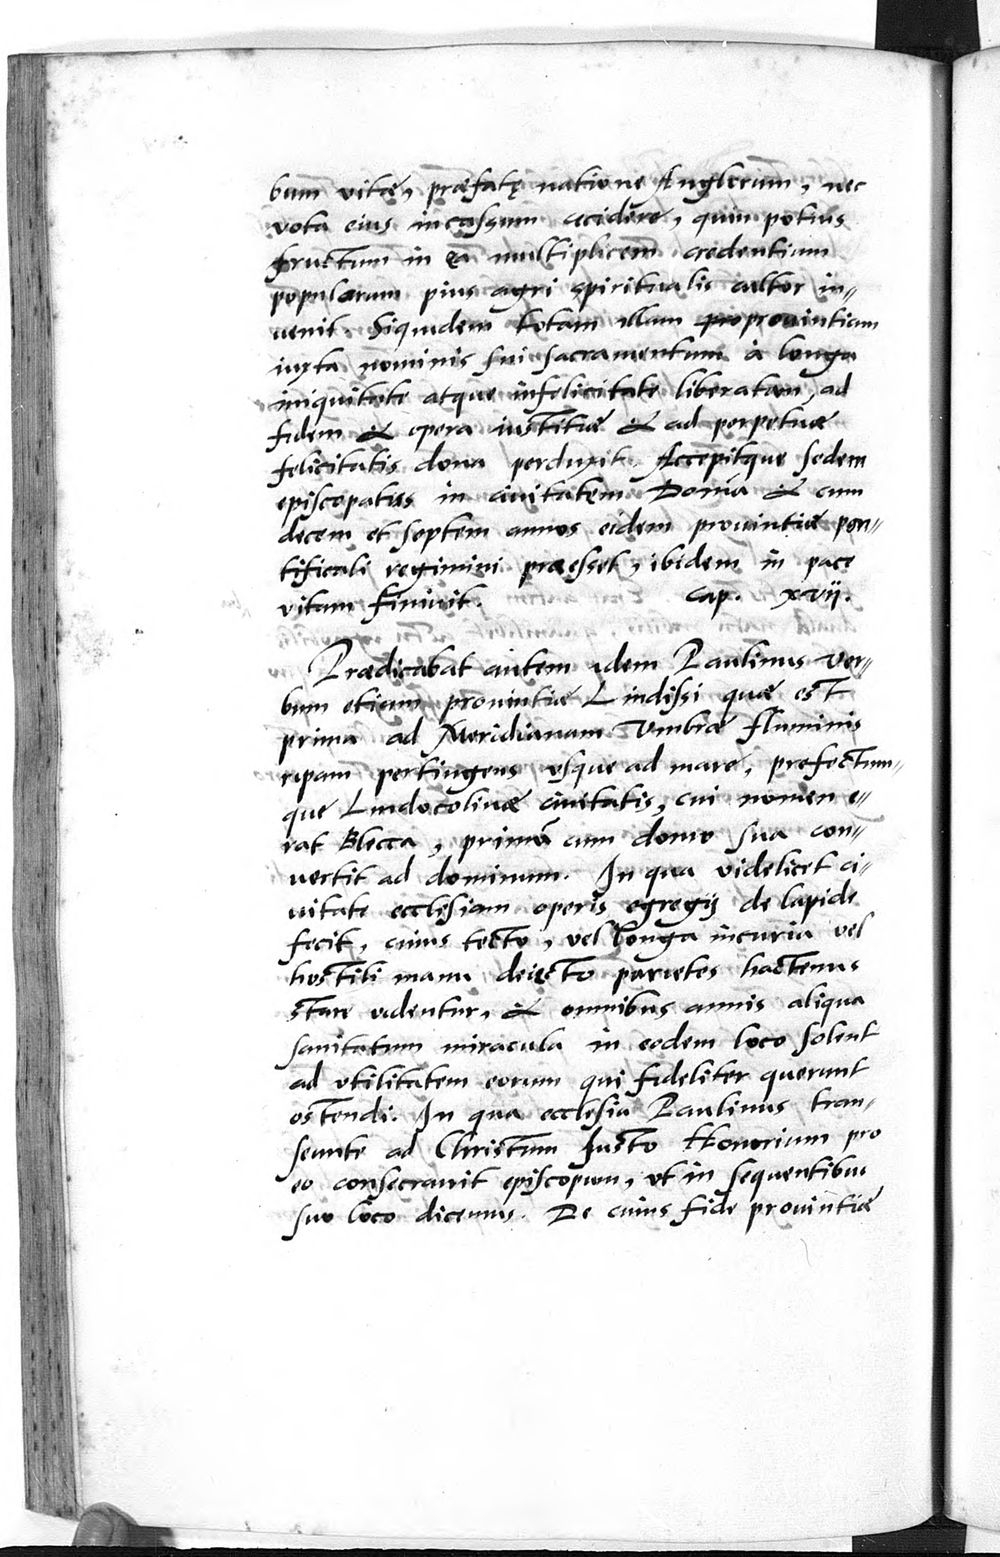 bum vitæ, præfatę natione Anglorum, nec
vota eius incassum cecidere, quin potius
fructum in ea multiplicem credentium
populorum pius agri spiritualis cultor in„
uenit. Siquidem totam illam prouintiam
iuxta nominis sui sacramentum à longa
iniquitate atque infelicitate liberatam, ad
fidem & opera iustitiæ & ad perpetuæ
felicitatis dona perduxit. Accepitque sedem
episcopatus in ciuitatem & cum
decem et septem annos eidem prouintiæ pon„
tificali regimini præesset, ibidem in pace
vitam finiuit. Cap. xvij.
Prædicabat autem idem Paulinus ver„
bum etiam prouintiæ Lindissi quæ est
prima ad Meridianam Vmbræ fluminis
ripam pertingens vsque ad mare, præfectum„
que Lindocolinæ ciuitatis, cui nomen e„
rat Blecca, primū cum domo sua con„
uertit ad dominum. In qua videlicet ci„
uitate ecclesiam operis egregij de lapide
fecit, cuius tecto, vel longa incuria vel
hostili manu deiecto parietes hactenus
stare videntur, & omnibus annis aliqua
sanitatum miracula in eodem loco solent
ad vtilitatem eorum qui fideliter querunt
ostendi. In qua ecclesia Paulinus tran„
seunte ad Christum Iusto Honorium pro
eo consecrauit episcopum, vt in sequentibus
suo loco dicemus. De cuius fide prouintiæ